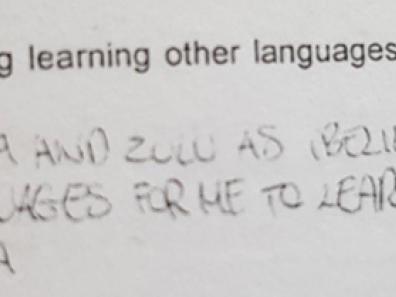 g learning other languages
A AND ZULU AS I BELIE
UAGES FOR ME TO LEAR
A